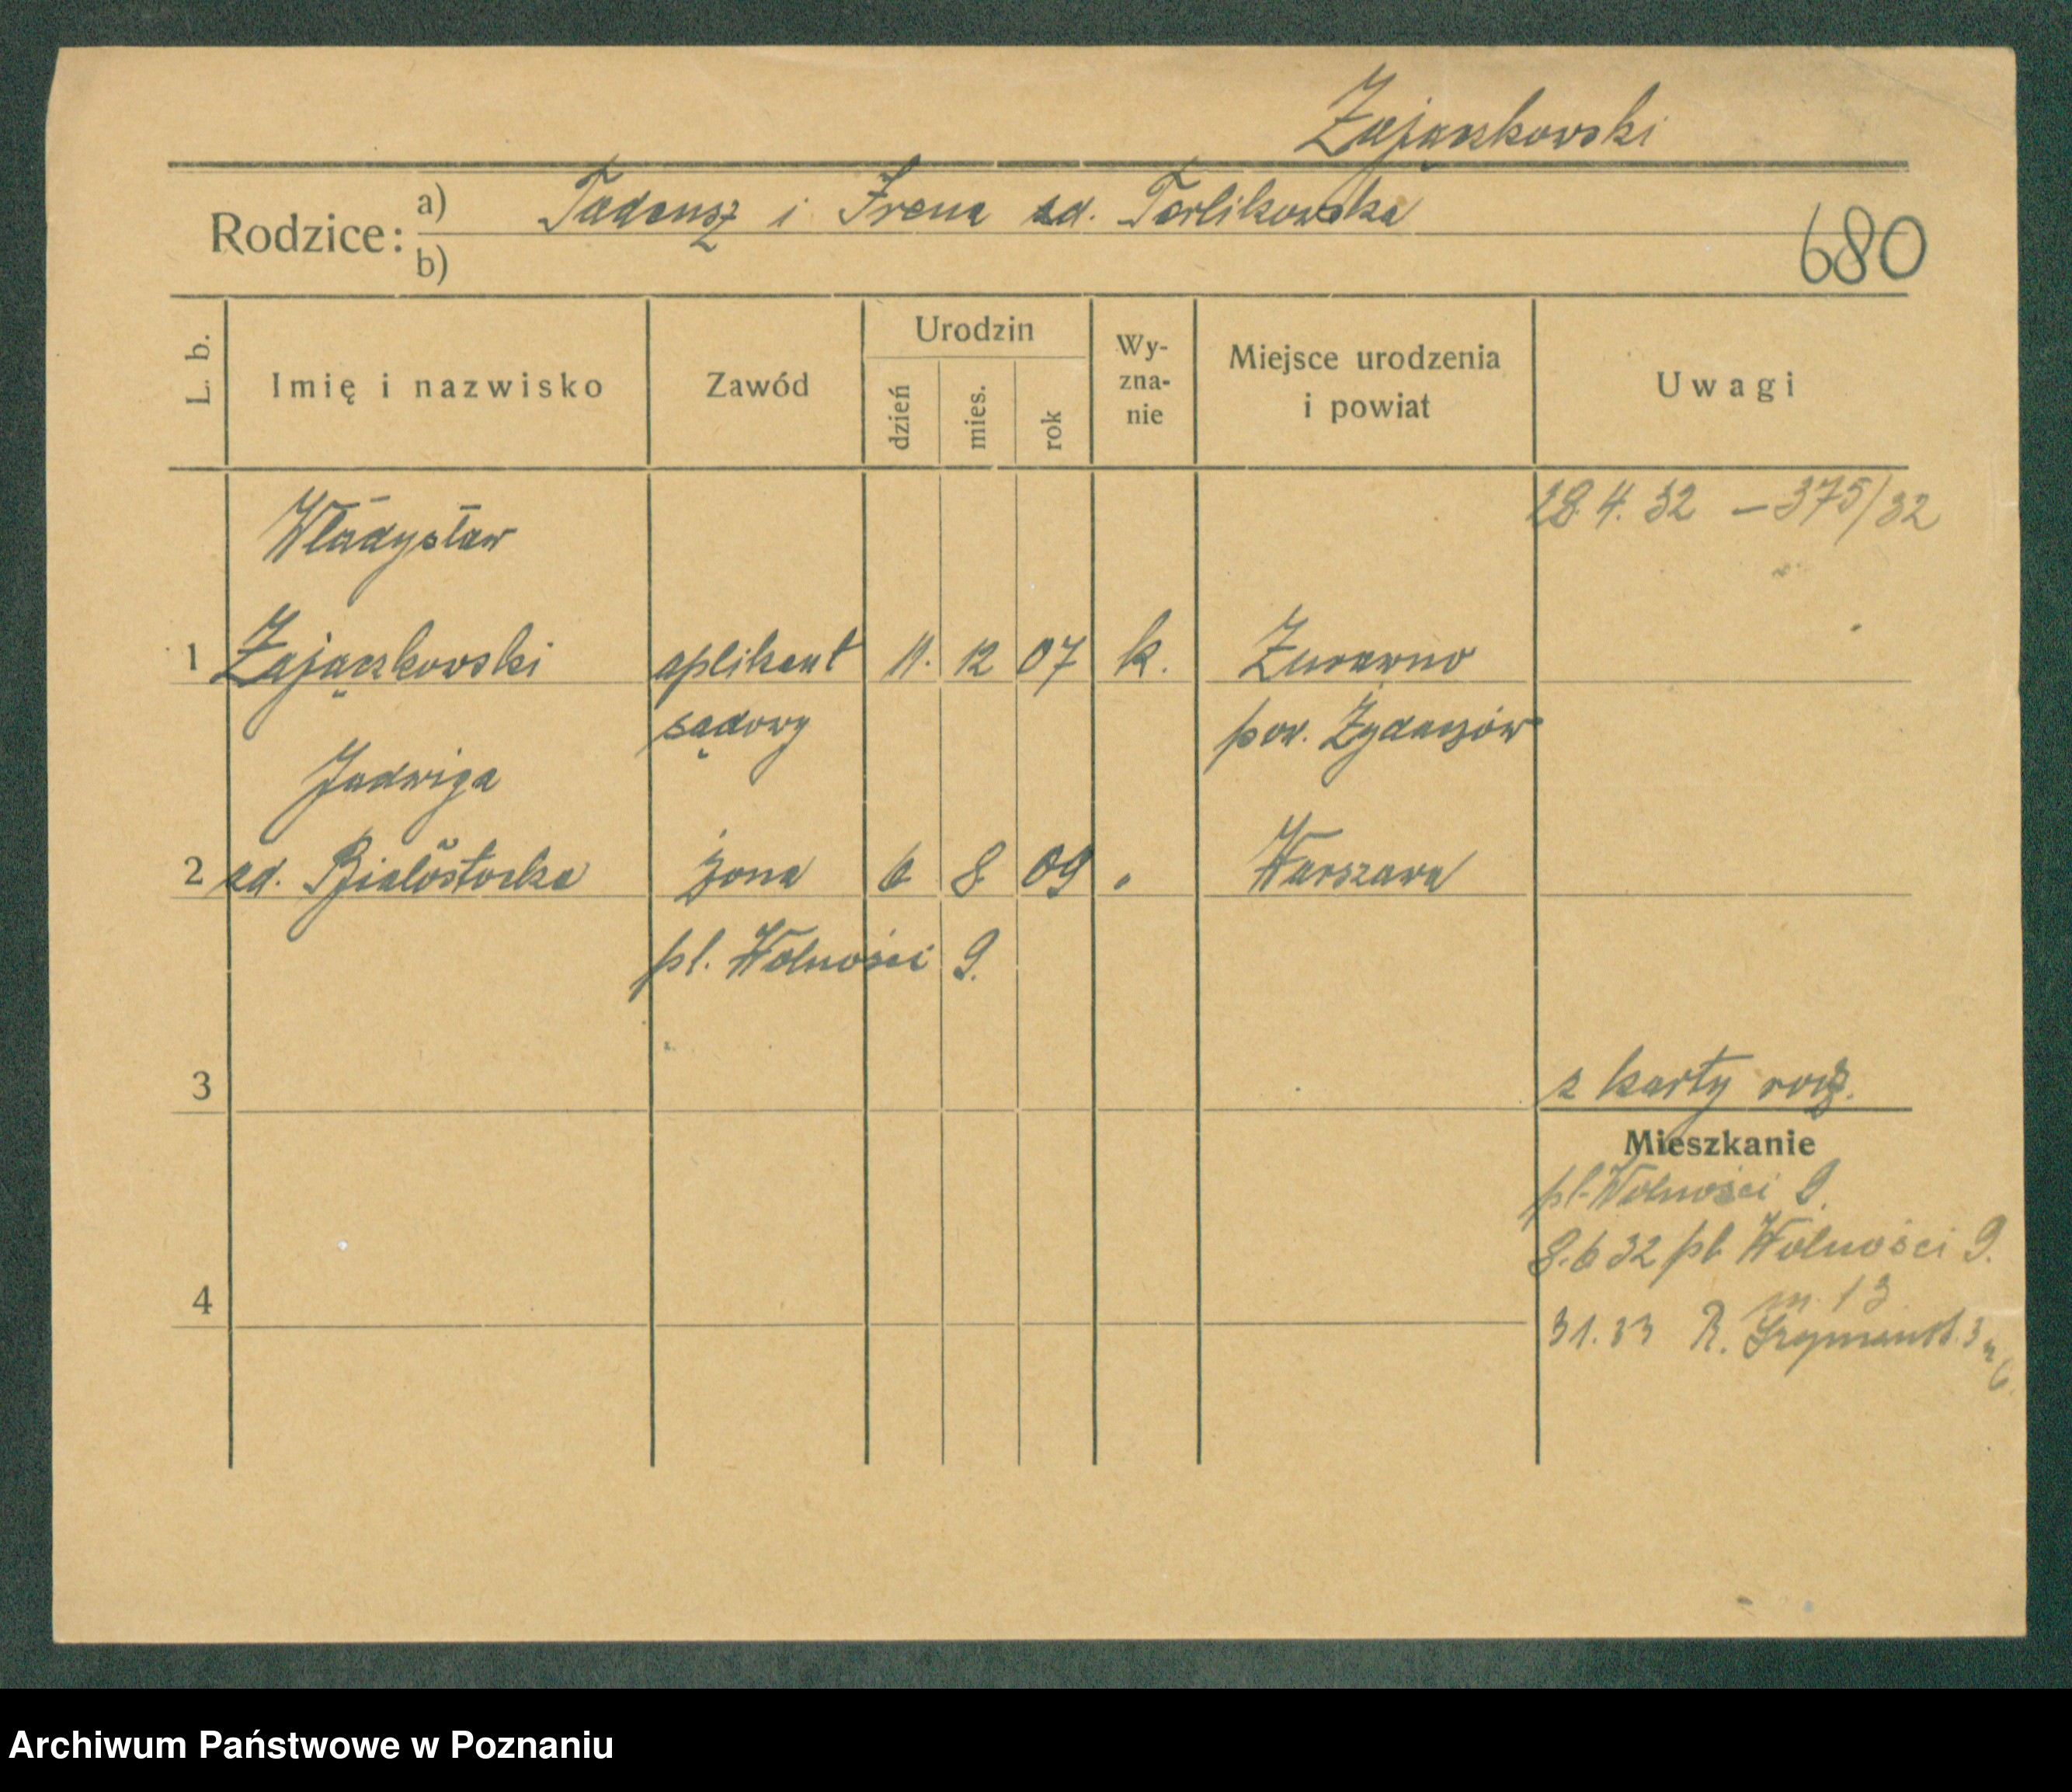 Zajączkowski
Rodzice: a) Tadeusz i Irena zd. Terlikowska
b)
680
L. b. Imię i nazwisko Zawód Urodzin dzień mies. rok Wy-zna-nie Miejsce urodzenia i powiat Uwagi
28.4.32 – 375/32
Władysław
1 Zajączkowski aplikant 11. 12 07 k. Żurawno
sądowy pow. Żydaczów
Jadwiga
2 zd. Białostocka żona 6 8 09 " Warszawa
pl. Wolności 9.
3 z karty rodz.
Mieszkanie
pl. Wolności 9.
8.6 32 pl. Wolności 9.
m. 13
4
31.33 R. Szymańsk. 3 m 6.
Archiwum Państwowe w Poznaniu